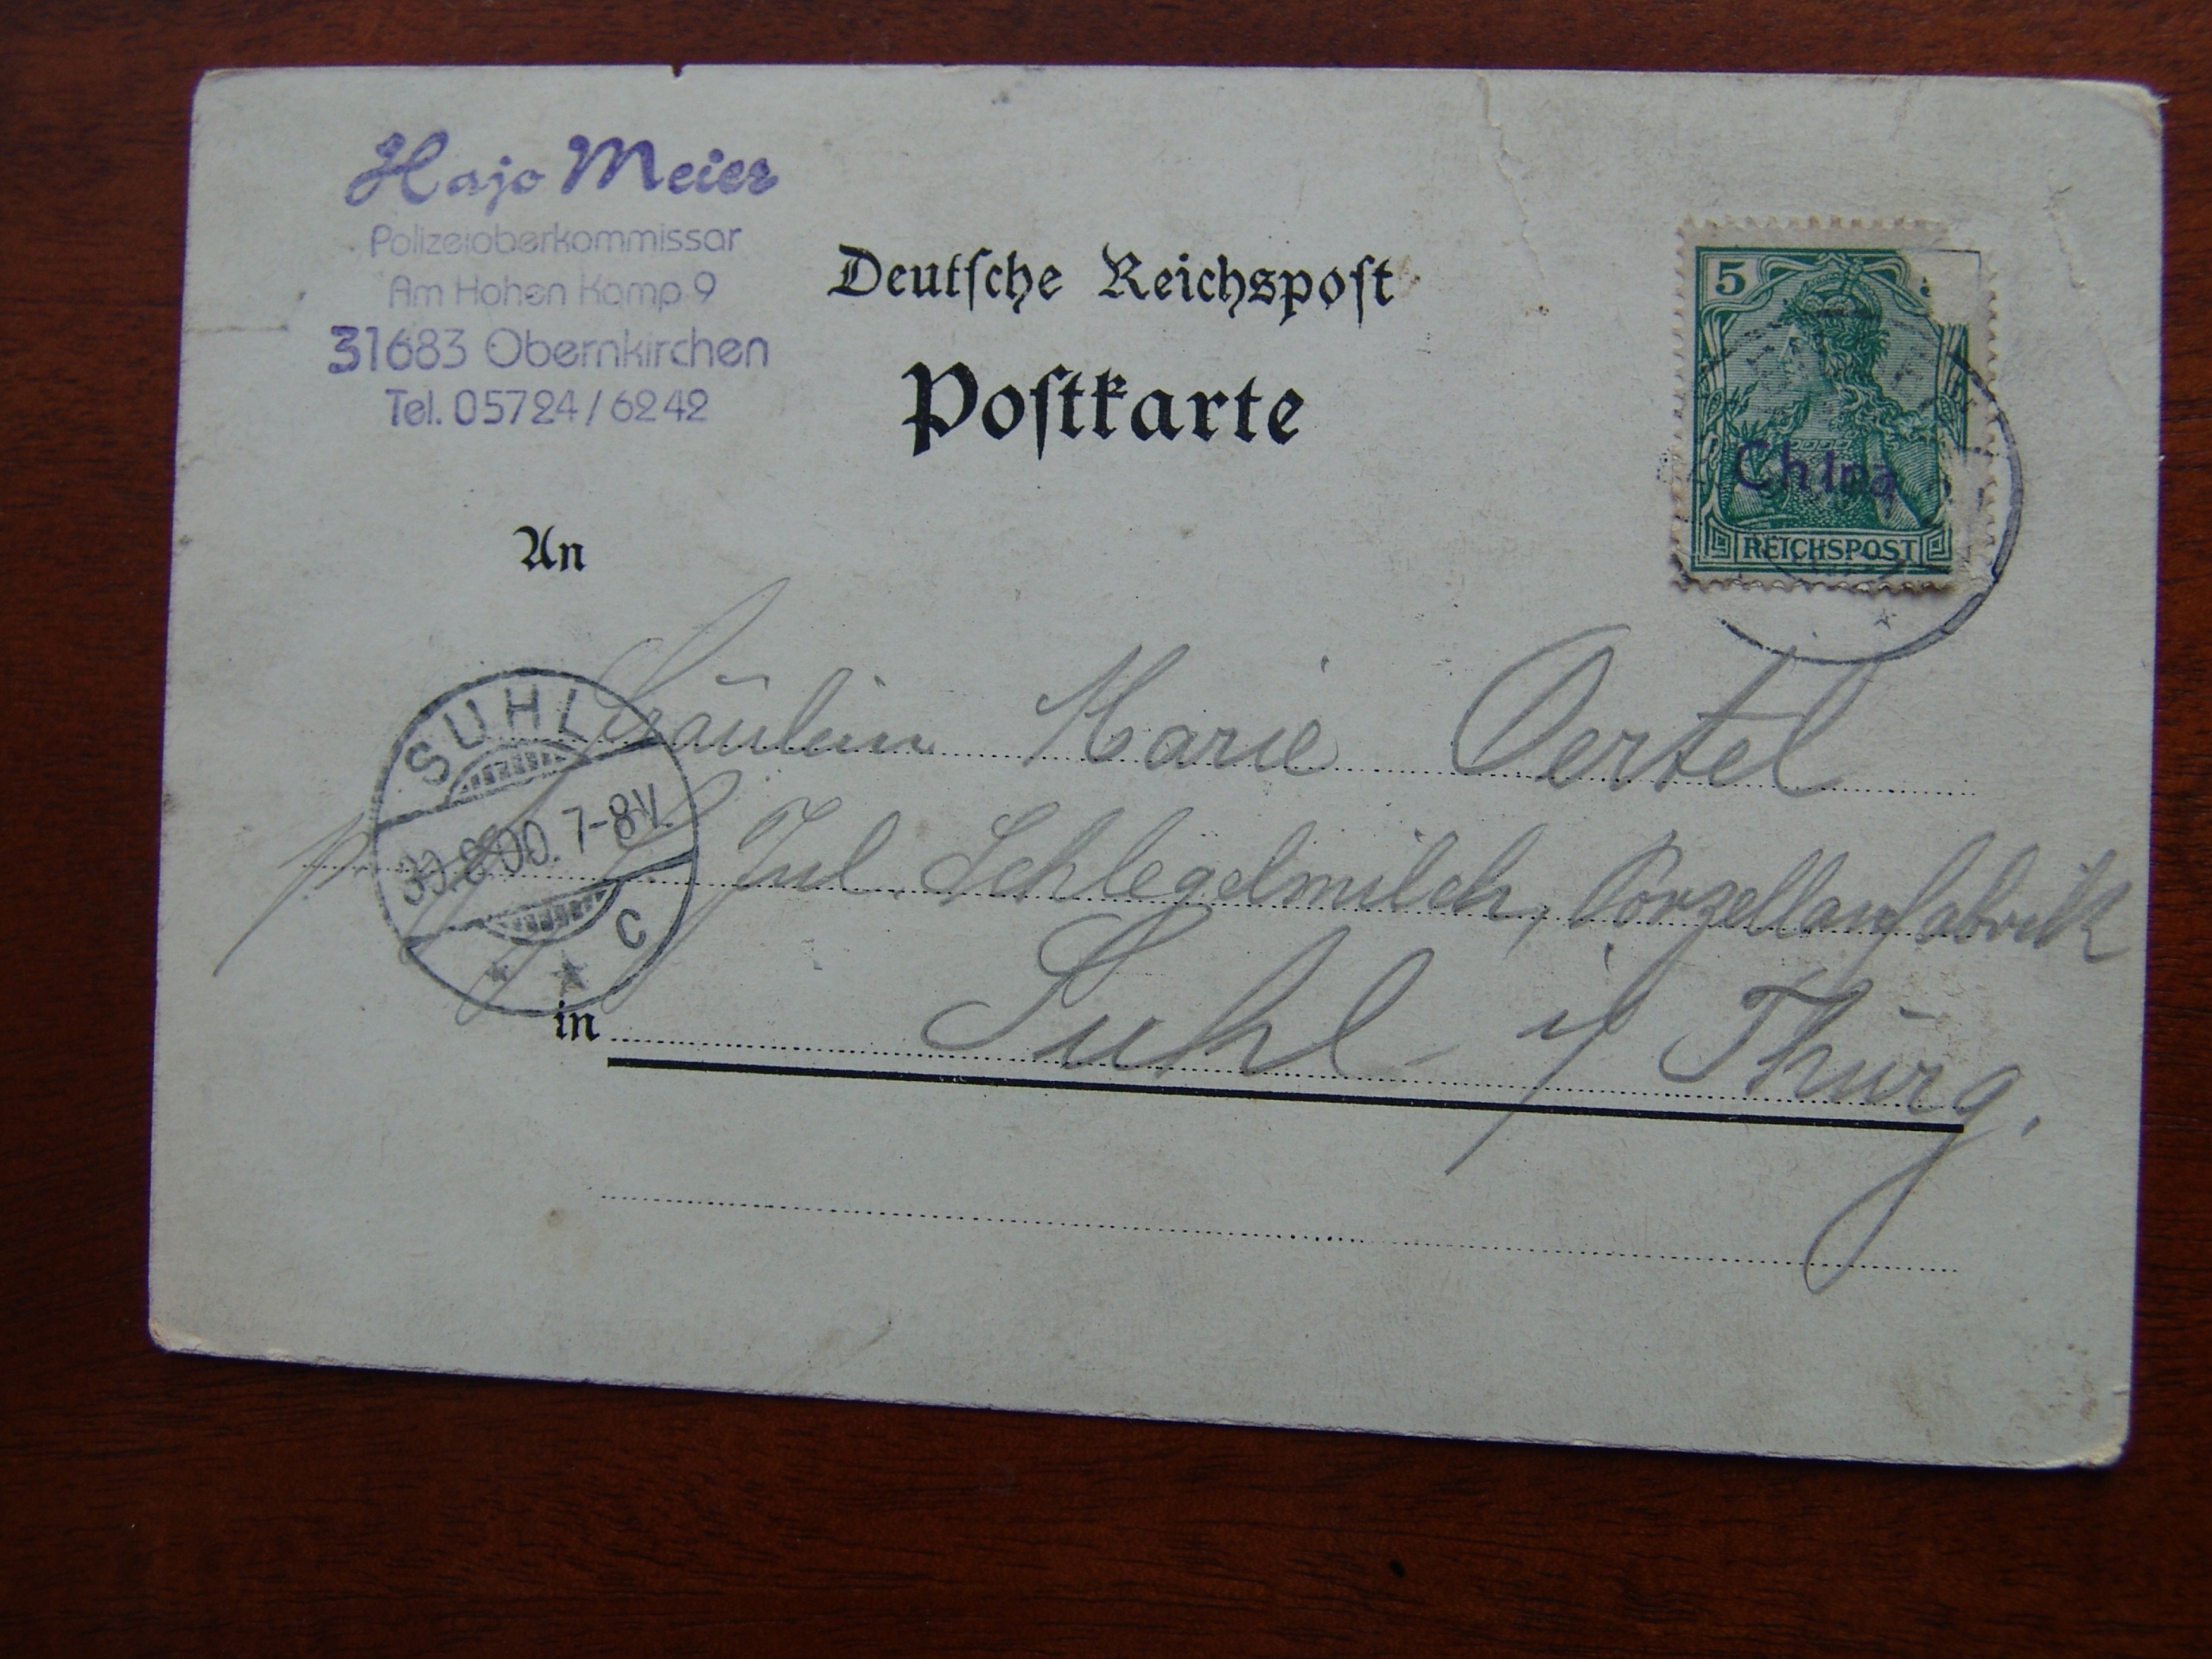 Hajo Meier
Polizeioberkommissar
Am Hohen Kamp 9
31683 Obernkirchen
Tel. 05724/6242
Deutsche Reichspost
Postkarte
5
China
REICHSPOST
An
Fräulein Marie Oertel
SUHL
30.8.00. 7-8V.
C
Jul. Schlegelmilch, Porzellanfabrik
in Suhl i/ Thürg.